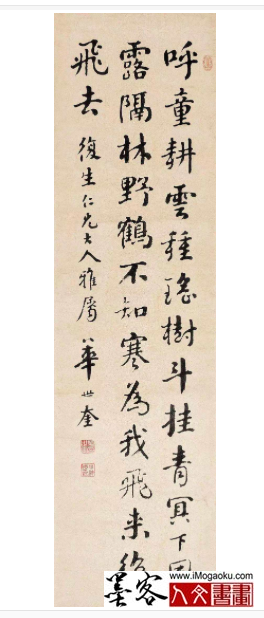 呼童耕雲種瑤樹斗挂青冥下
露隔林野鶴不知寒為我飛来
飛去
復生仁兄大人雅屬
華世奎
墨客
www.iMogaoku.com
人文書畫